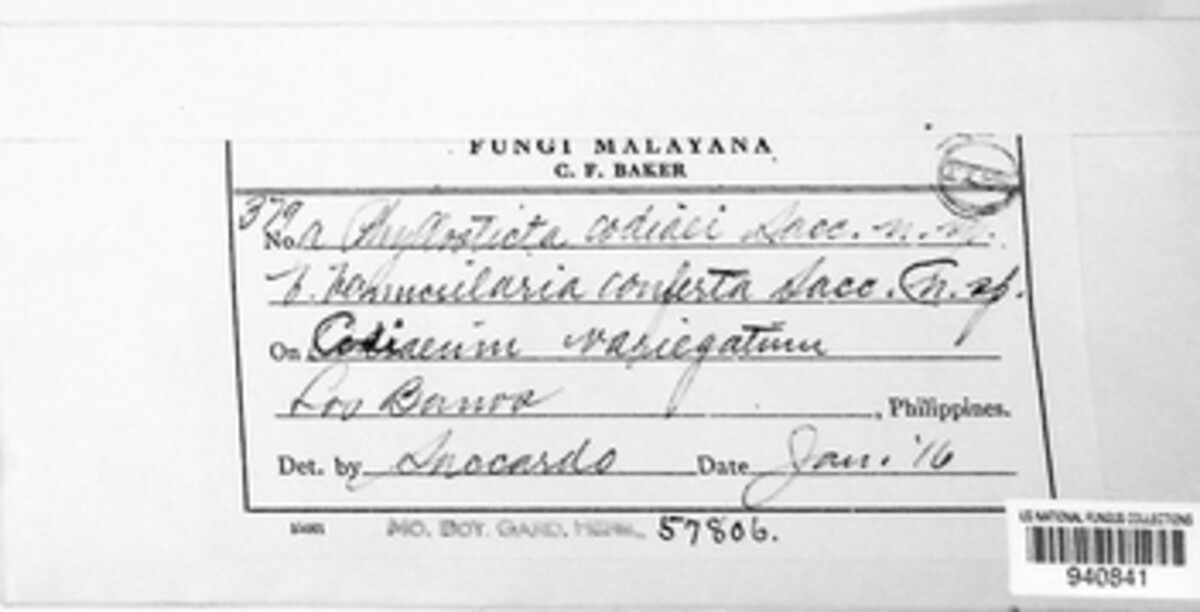 FUNGI MALAYANA
C. F. BAKER
379
No. a Phyllosticta codiaei Sacc. n.
b. conferta Sacc. (n. sp.
On Codiaeum variegatum
Los Banos, Philippines.
Det. by Date Jan. '16
MO. BOT. GARD. HERB. 57806.
US NATIONAL FUNGUS COLLECTIONS
940841